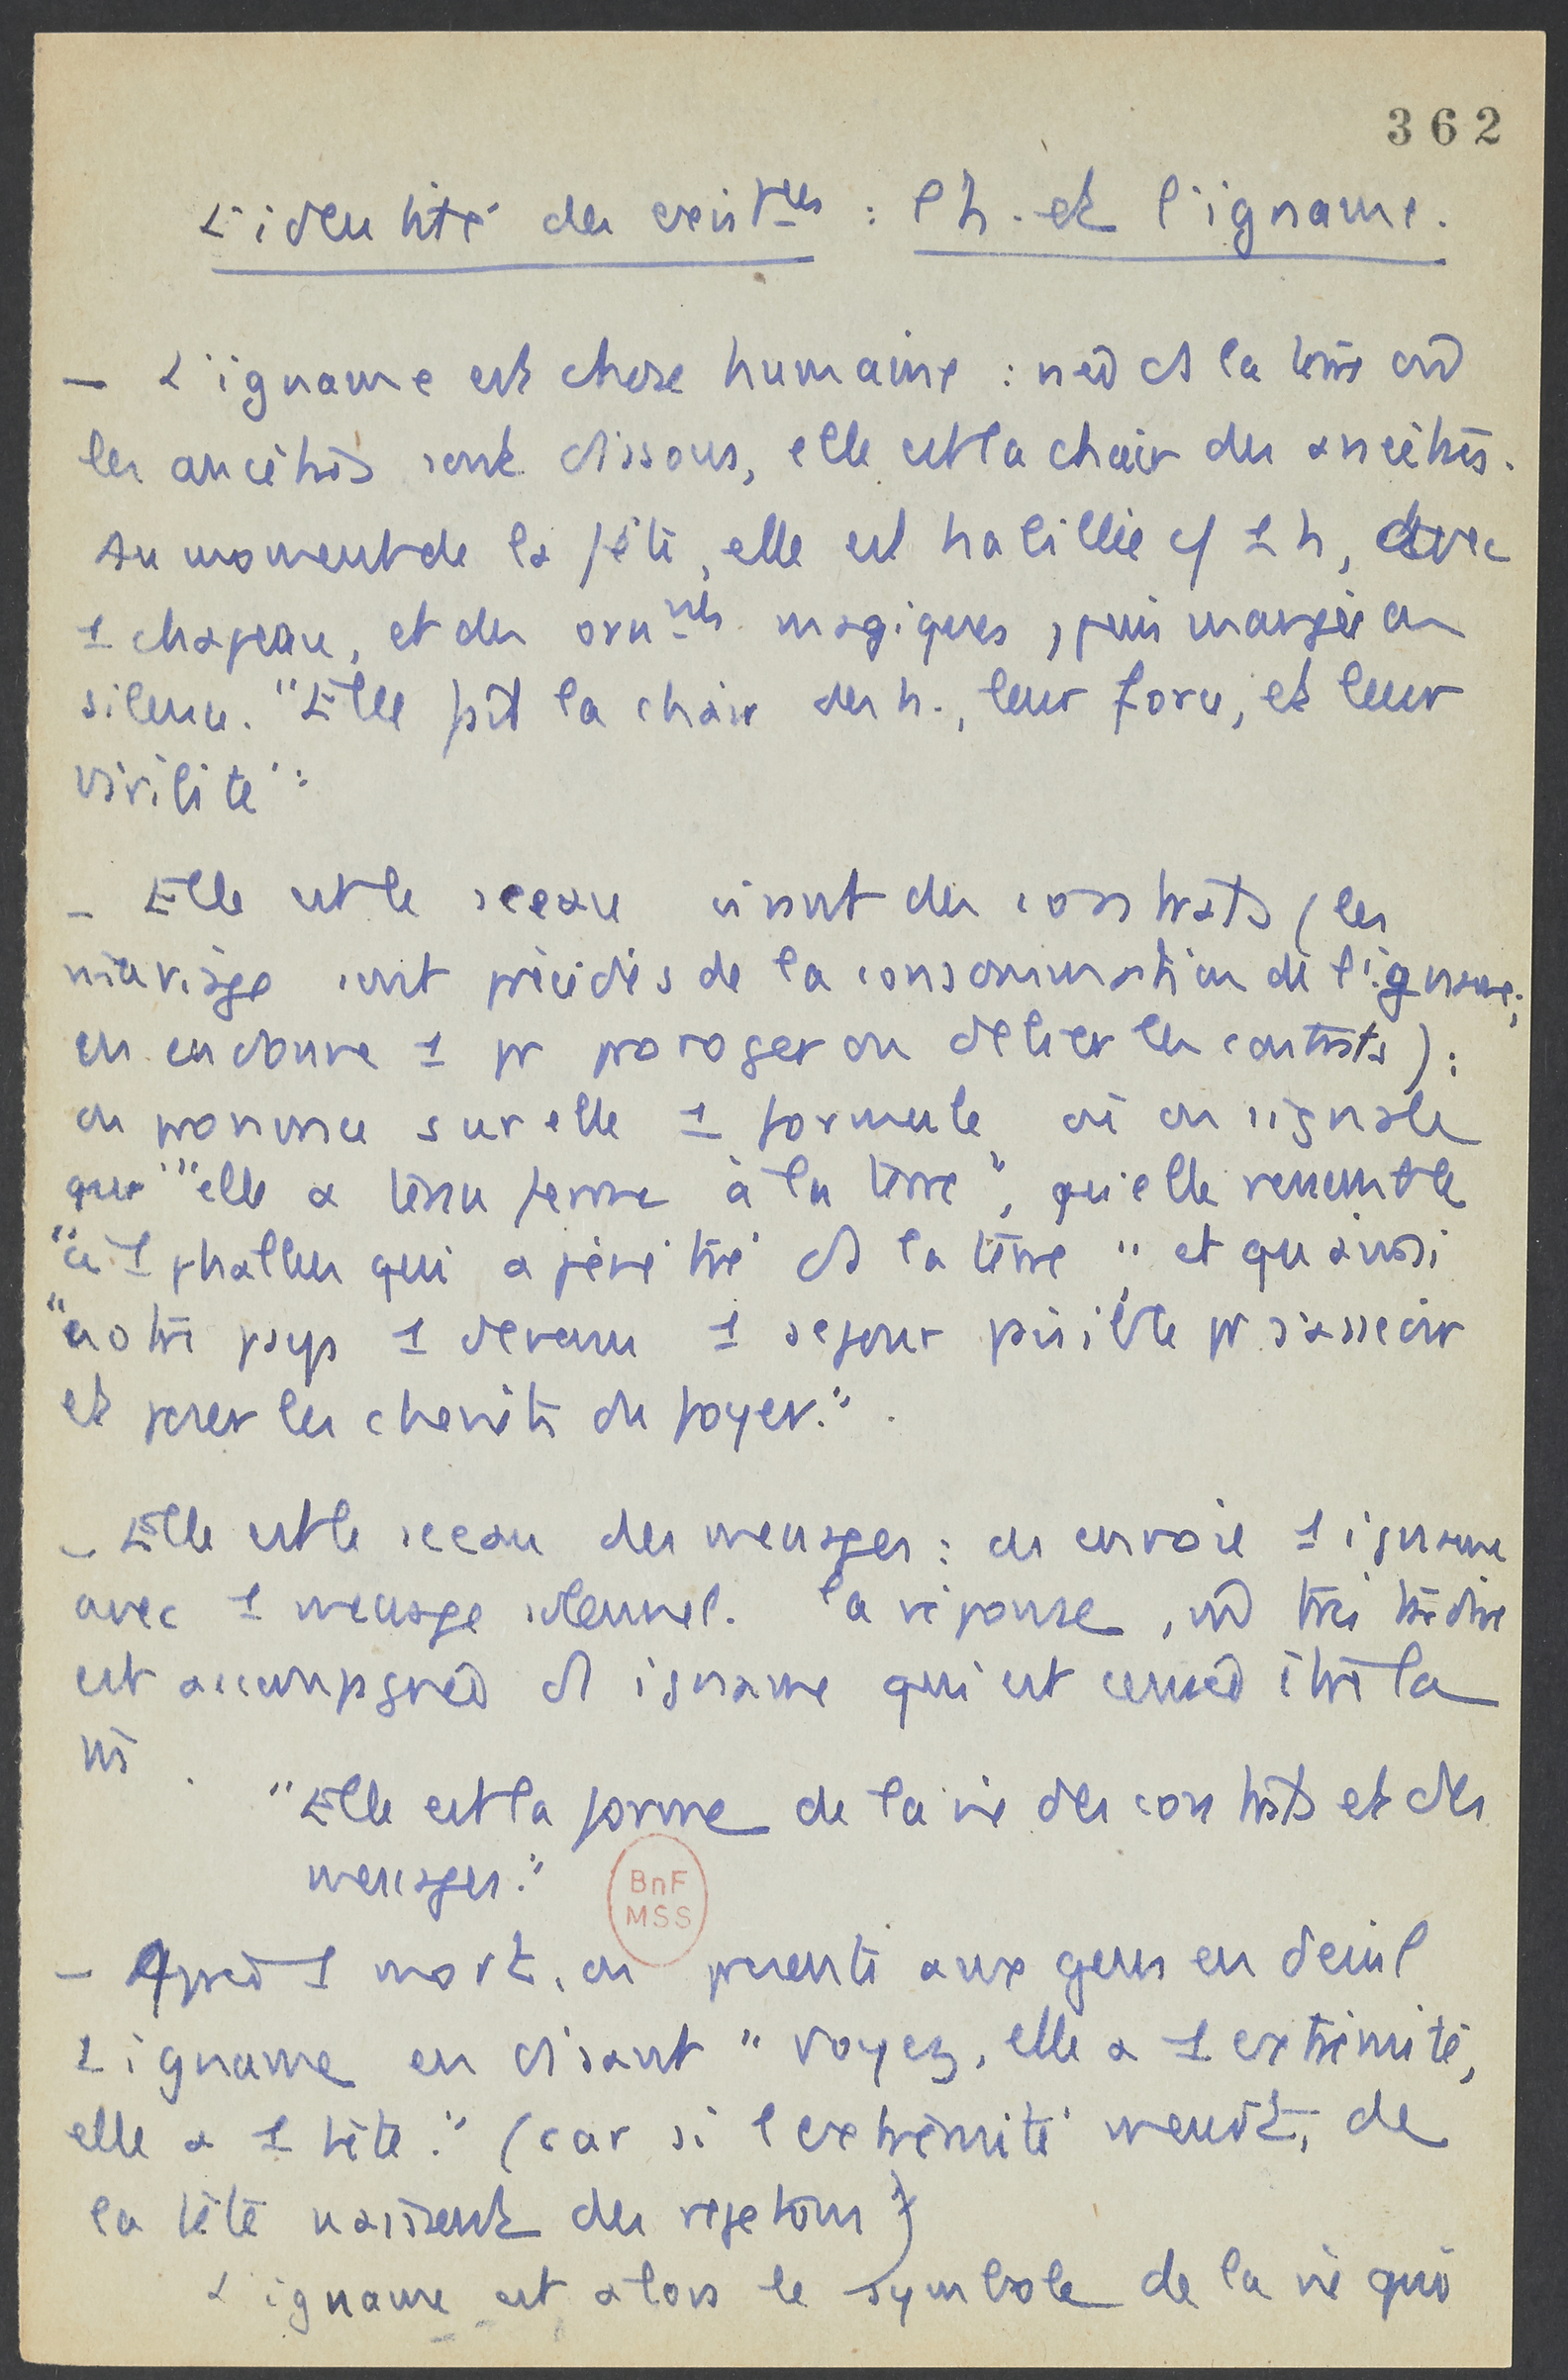 362
L'identité des exist^ces : l'h. et l'igname.
– L'igname est chose humaine : née ds la terre où
les ancêtres sont dissous, elle est la chair des ancêtres.
Au moment de la fête, elle est habillée c/ 1 h, avec
1 chapeau, et des orn^nts magiques, puis mangée en
silence. "Elle fut la chair des h., leur force, et leur
virilité":
– Elle est le sceau vivant des contrats (les
mariage sont précédés de la consommation de l'igname;
on en donne 1 pr proroger ou délier les contrats);
on prononce sur elle 1 formule où on signale
que "elle a tenu ferme à la terre", qu'elle ressemble
"à 1 phallus qui a pénétré ds la terre" et qu'ainsi
"notre pays 1 devenu 1 séjour paisible pr s'asseoir
et poser les chenets du foyer."
– Elle est le sceau des messages : on envoie 1 igname
avec 1 message solennel. la réponse,
est accompagnée d' igname qui est censée être la
"Elle est la forme de la vie des contrats et des
messages."
BnF
MSS
– Après 1 mort, on présente aux gens en deuil
L'igname en disant "Voyez, elle a 1 extrémité,
elle a 1 tête." (car si l'extrémité meurt, de
la tête naissent des rejetons)
L'igname est alors le symbole de la vie qui